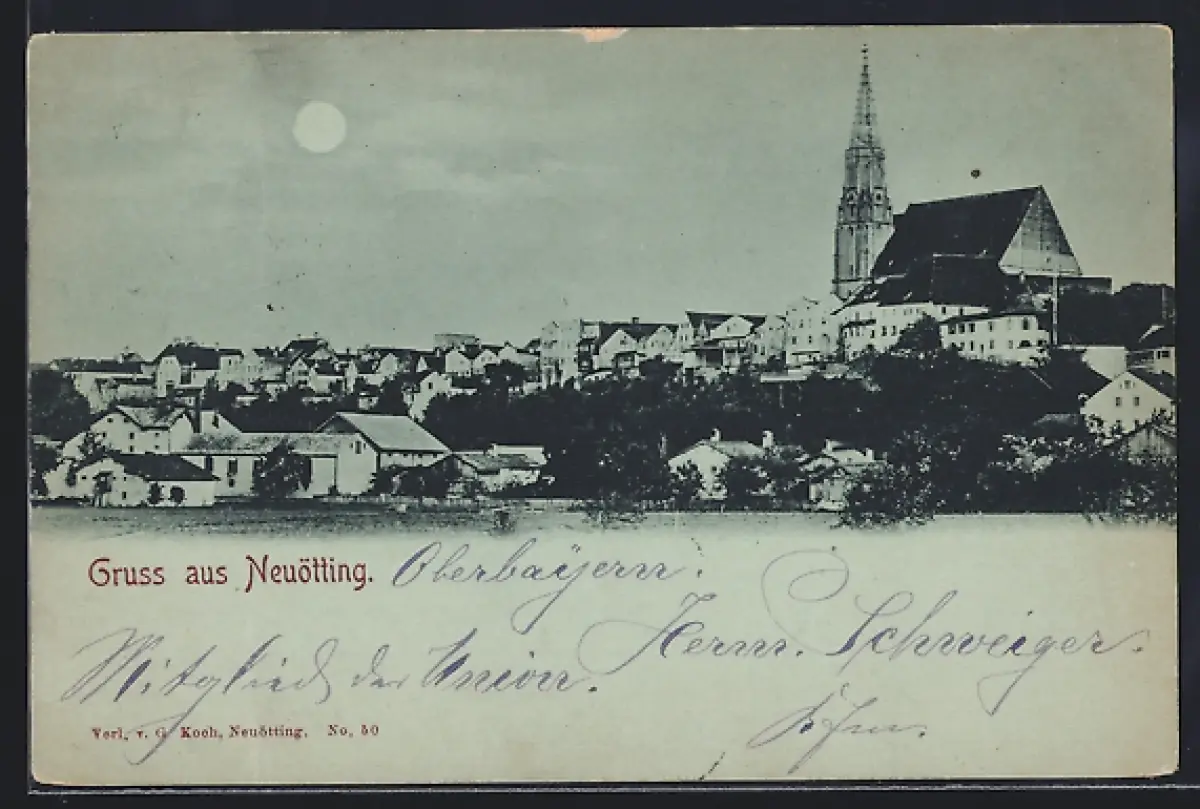 Gruss aus Neuötting. Oberbayern.
Herm. Schweiger.
Mitglied der Union.
Verl. v. G. Koch, Neuötting. No. 50